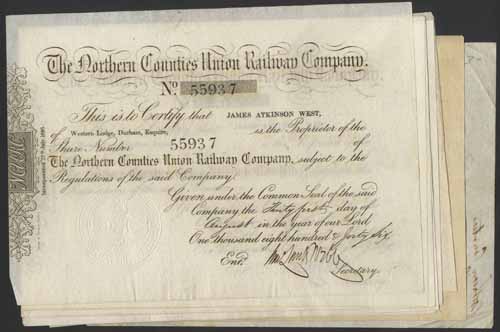 The Northern Counties Union Railway Company.
No. 55937
This is to Certify that JAMES ATKINSON WEST,
of Western Lodge, Durham, Esquire, is the Proprietor of the
Share Number 55937 of
The Northern Counties Union Railway Company, subject to the
Regulations of the said Company.
Given under the Common Seal of the said
Company the Thirty first day of
August in the year of our Lord
One thousand eight hundred & forty six.
Entd.
Secretary.